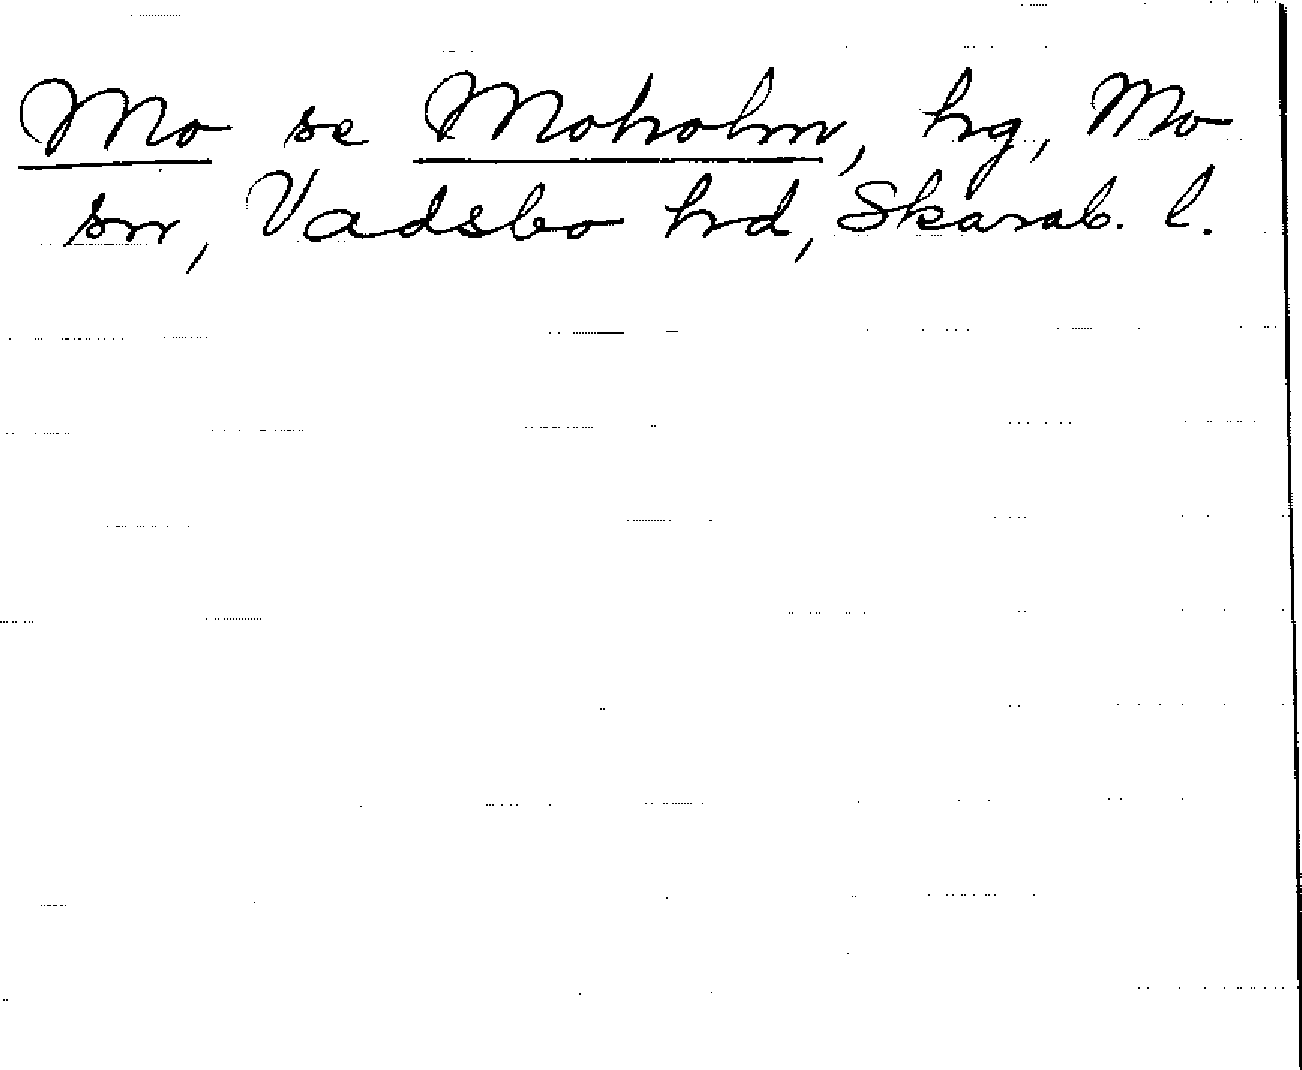 Mo se Moholm, hg, Mo
sn, Vadsbo hd, Skarab. l.